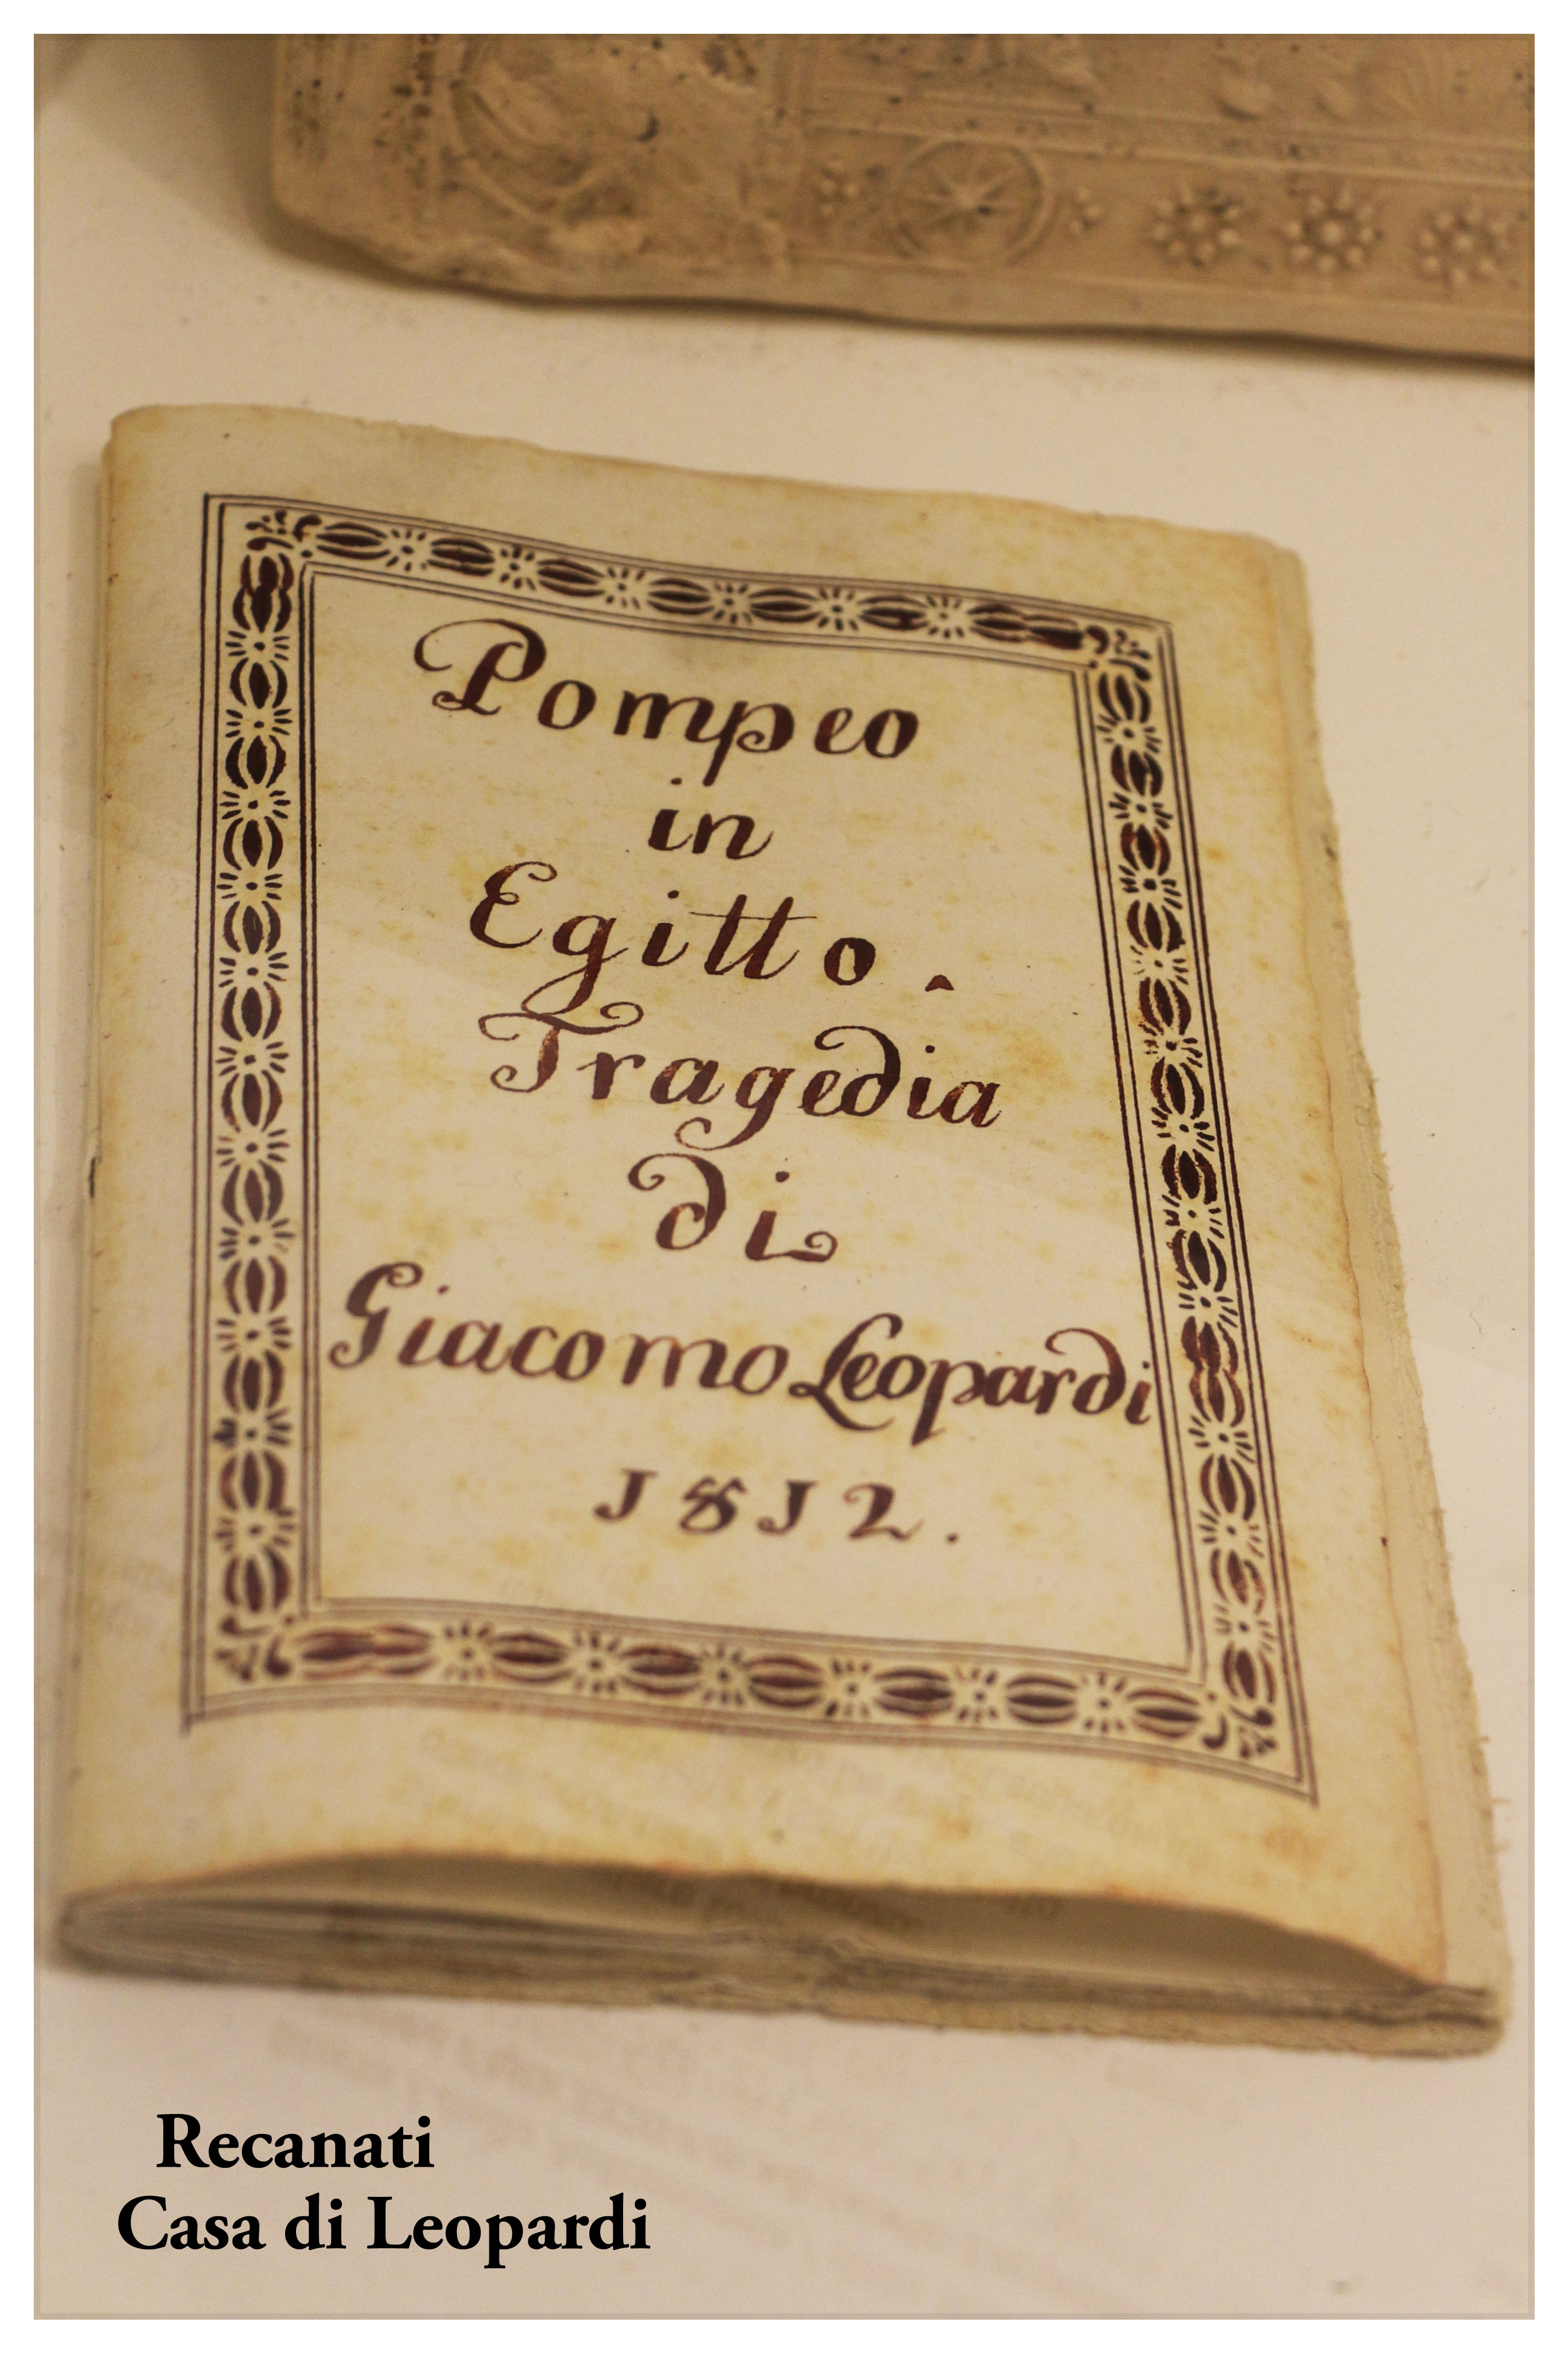 Pompeo
in
Egitto.
Tragedia
di
Giacomo Leopardi
1812.
Recanati
Casa di Leopardi